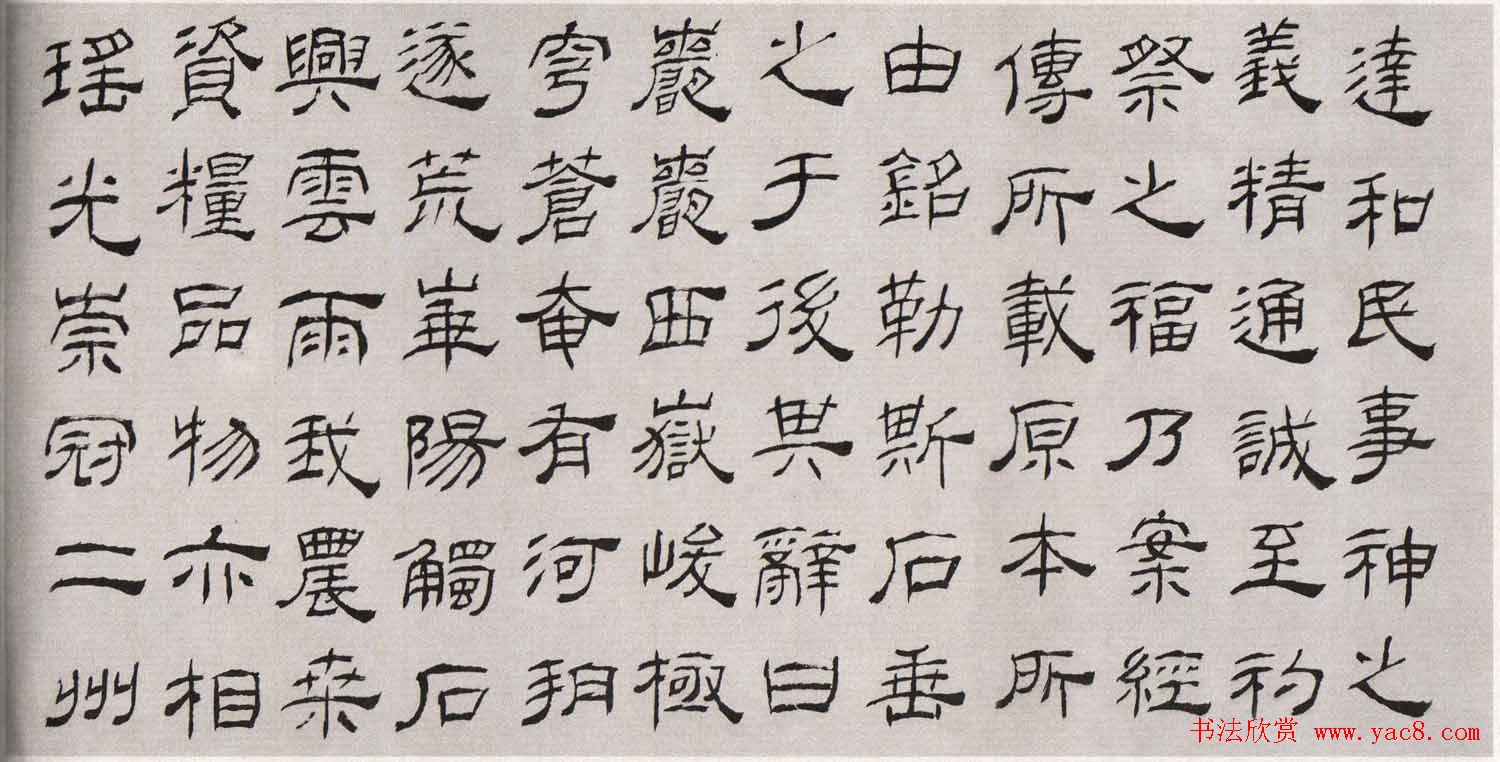 達和民事神之
義精通誠至礿
祭之福乃案經
傳所載原本所
由銘勒斯石垂
之于後其辭曰
巖巖西嶽峻極
穹蒼奄有河朔
遂荒華陽觸石
興雲雨我農桑
資糧品物亦相
瑤光崇冠二州
书法欣赏 www.yac8.com